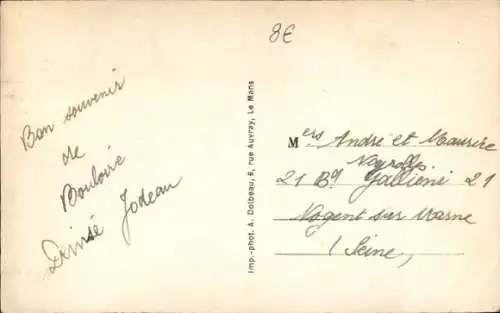 8€
Bon souvenir
de
Bouloire
Denise Jodeau
Imp.-phot. A. Dolbeau, 6, rue Auvray, Le Mans
Mers André et Maurice
21 Bd Galliéni 21
Nogent sur Marne
(Seine)